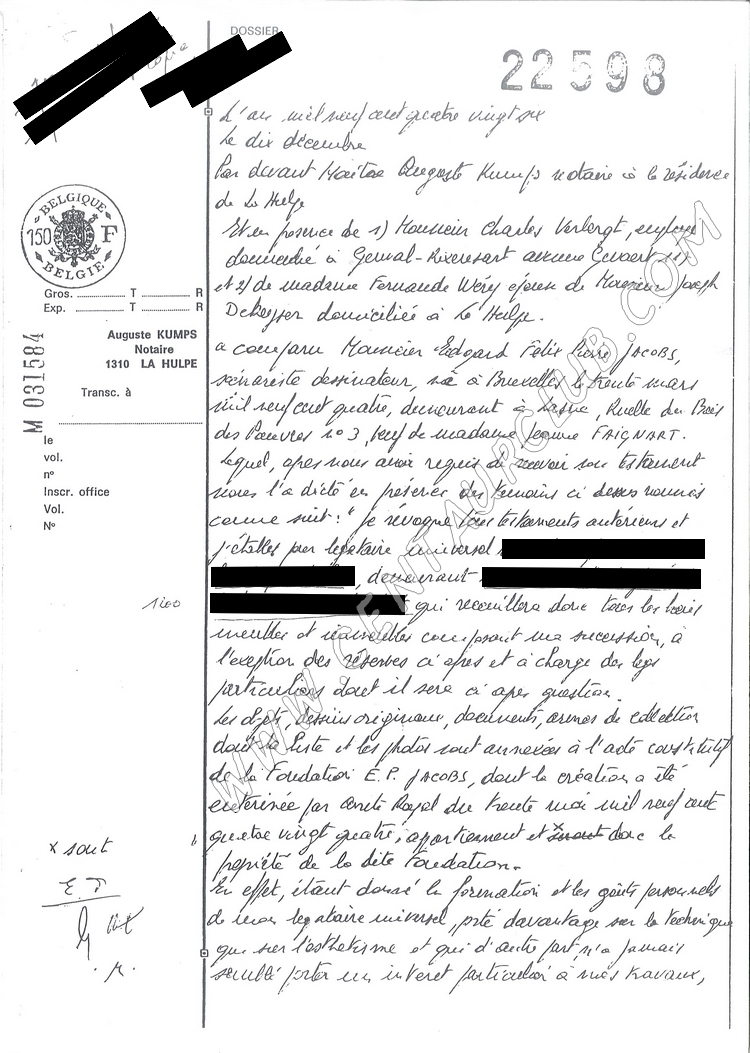 DOSSIER
22598
L'an mil neuf cent quatre vingt six
Le dix décembre
Par devant Maître Auguste Kumps notaire à la résidence
de La Hulpe
Et en présence de 1) Monsieur Charles Verlengt, employé
domicilié à Genval-Rixensart avenue Gevaert
et 2) de madame Fernande Wéry épouse de Monsieur Joseph
Dekeyser domiciliée à La Hulpe.
a comparu Monsieur Edgard Félix Pierre JACOBS,
scénariste dessinateur, né à Bruxelles le trente mars
mil neuf cent quatre, demeurant à Lasne, Ruelle du Bois
des Pauvres n° 3, veuf de madame Jeanne FAIGNART.
Lequel, apres nous avoir requis de recevoir son testament
nous l'a dicté en présence des témoins ci dessus nommés
comme suit : "je révoque tous testaments antérieurs et
j'établis pour légataire universel
, demeurant
qui recueillera donc tous les biens
meubles et immeubles composant ma succession, à
l'exeption des réserves ci apres et à charge des legs
particuliers dont il sera ci apres question.
Les objets, dessins originaux, documents, armes de collection
dont la liste et les photos sont annexées à l'acte constitutif
de la Fondation E.P. JACOBS, dont la création a été
entérinée par arrêté Royal du trente mai mil neuf cent
quatre vingt quatre, appartiennent et donc la
propriété de la dite Fondation.
En effet, étant donné la formation et les goûts personnels
de mon légataire universel, porté davantage sur la technique
que sur l'esthétisme et qui d'autre part, n'a jamais
semblé porter un interet particulier à mes travaux,
BELGIQUE
150 F
BELGIE
Gros. T R
Exp. T R
Auguste KUMPS
Notaire
1310 LA HULPE
M 031584
Transc. à
le
vol.
n°
Inscr. office
Vol.
N°
x sont
WWW.CENTAURCLUB.COM